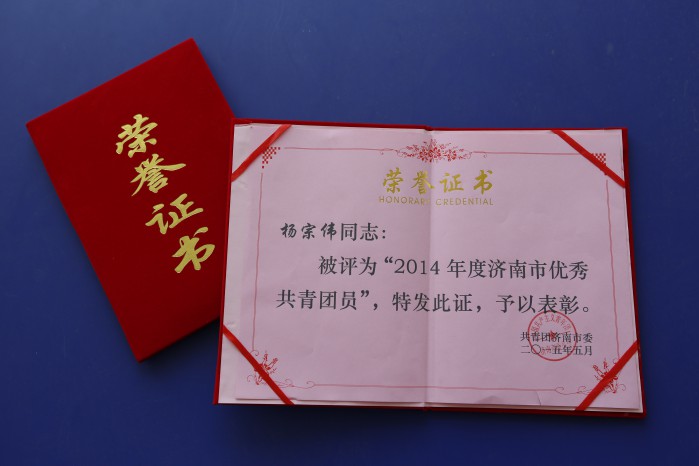 荣誉证书
荣誉证书
HONORARY CREDENTIAL
杨宗伟同志：
被评为“2014 年度济南市优秀
共青团员”，特发此证，予以表彰。
共青团济南市委
二〇一五年五月